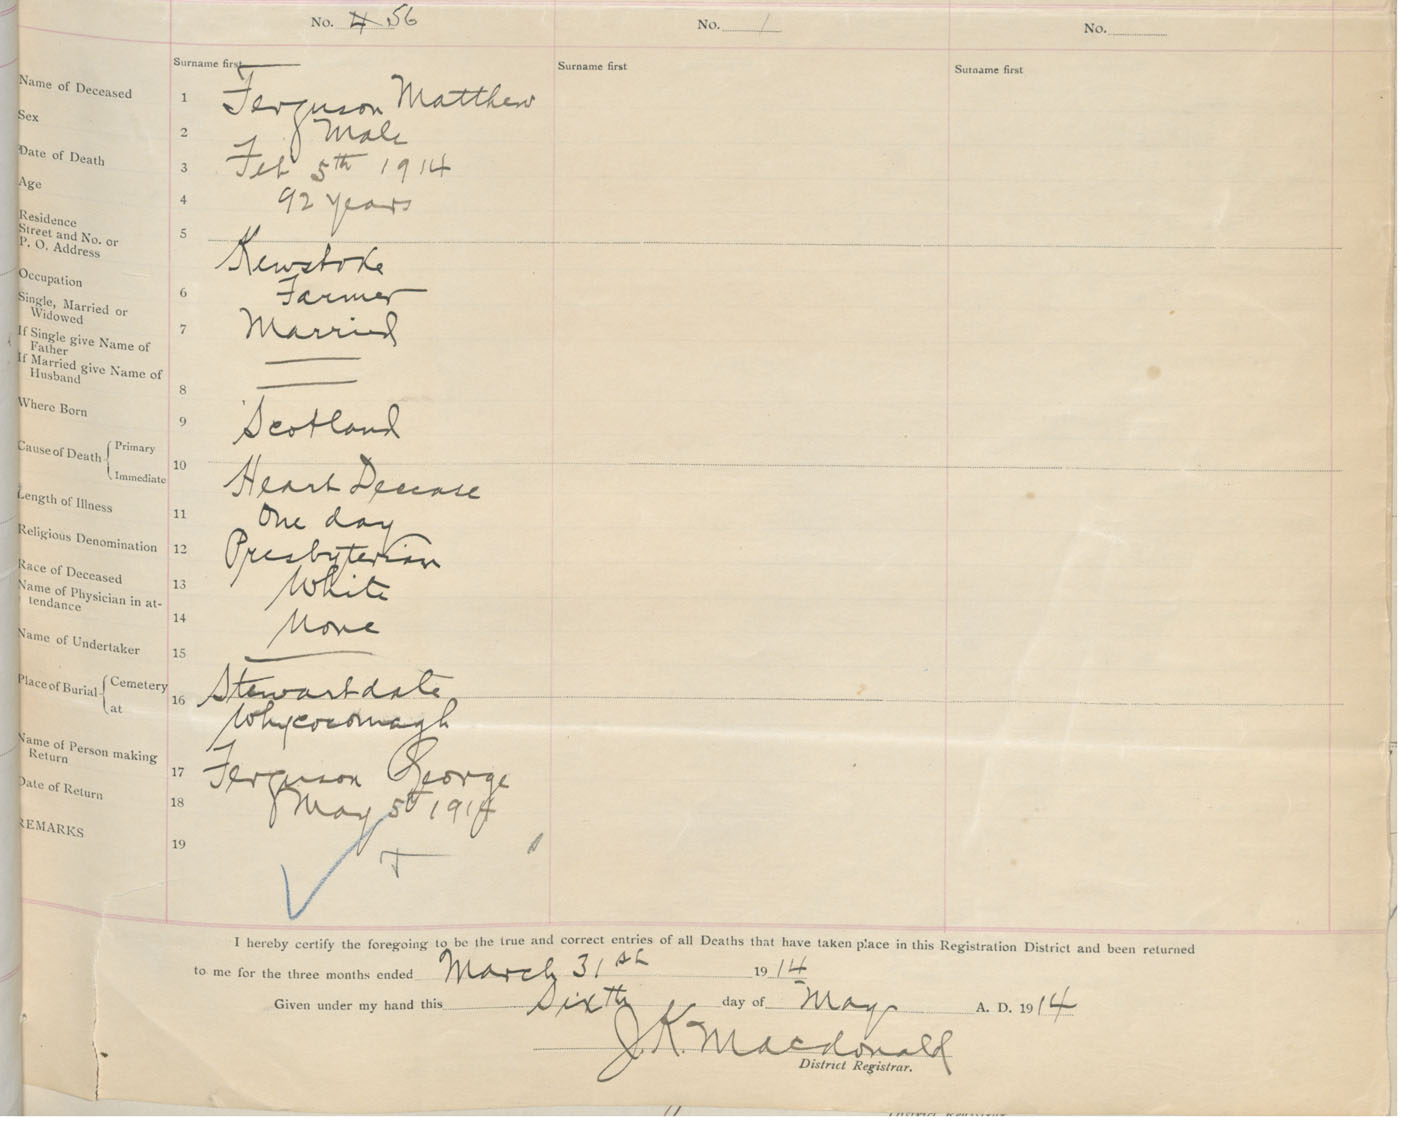 No. 4 56
No. 1
No.
Surname first
Surname first
Surname first
Name of Deceased 1 Ferguson Matthew
Sex 2 Male
Date of Death 3 Feb 5th 1914
Age 4 92 years
Residence
Street and No. or
P. O. Address 5 Kewstoke
Occupation 6 Farmer
Single, Married or
Widowed 7 Married
If Single give Name of
Father
If Married give Name of
Husband 8
Where Born 9 Scotland
Cause of Death { Primary
Immediate 10 Heart Decease
Length of Illness 11 One day
Religious Denomination 12 Presbyterian
Race of Deceased 13 White
Name of Physician in at-
tendance 14 None
Name of Undertaker 15
Place of Burial { Cemetery Stewartdale
at 16 Whycocomagh
Name of Person making
Return 17 Ferguson George
Date of Return 18 May 5th 1914
REMARKS 19
I hereby certify the foregoing to be the true and correct entries of all Deaths that have taken place in this Registration District and been returned
to me for the three months ended March 31st 1914
Given under my hand this Sixth day of May A. D. 1914
J. K. Macdonald
District Registrar.